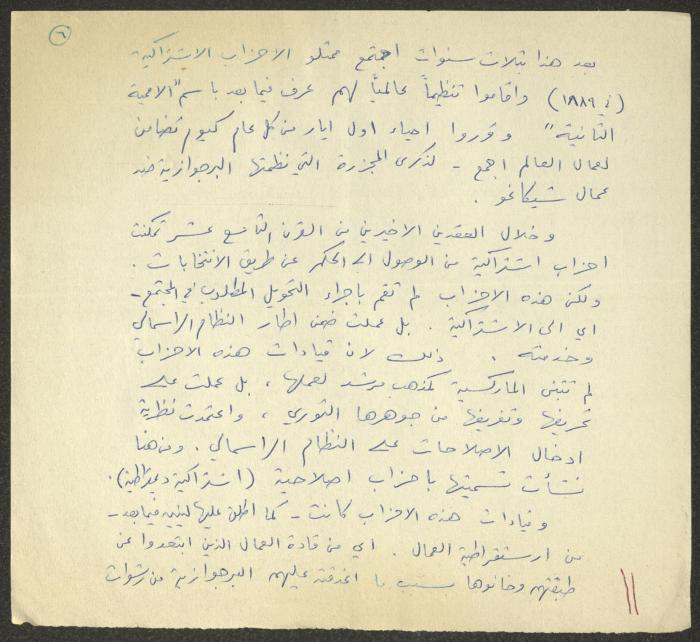 ٦
بعد هذا بثلاث سنوات اجتمع ممثلو الاحزاب الاشتراكية
(في ١٨٨٩) واقاموا تنظيماً عالمياً لهم عرف فيما بعد باسم "الاممية
الثانية" وقرروا احياء اول ايار من كل عام كيوم تضامن
لعمال العالم اجمع - لذكرى المجزرة التي نظمتها البرجوازية ضد
عمال شيكاغو .
وخلال العقدين الاخيرين من القرن التاسع عشر تمكنت
احزاب اشتراكية من الوصول الى الحكم عن طريق الانتخابات .
ولكن هذه الاحزاب لم تقم باجراء التحويل المطلوب في المجتمع -
اي الى الاشتراكية . بل عملت ضمن اطار النظام الراسمالي
وخدمته . ذلك لان قيادات هذه الاحزاب
لم تتبنى الماركسية كمذهب مرشد لعملها ، بل عملت على
تحريفها وتفريغها من جوهرها الثوري ، واعتمدت نظرية
ادخال الاصلاحات على النظام الراسمالي . ومن هنا
نشأت تسميتها باحزاب اصلاحية (اشتراكية ديمقراطية) .
وقيادات هذه الاحزاب كانت - كما اطلق عليها لينين فيما بعد -
من ارستقراطية العمال . اي من قادة العمال الذين ابتعدوا عن
طبقتهم وخانوها بسبب ما اغدقته عليهم البرجوازية من رشوات